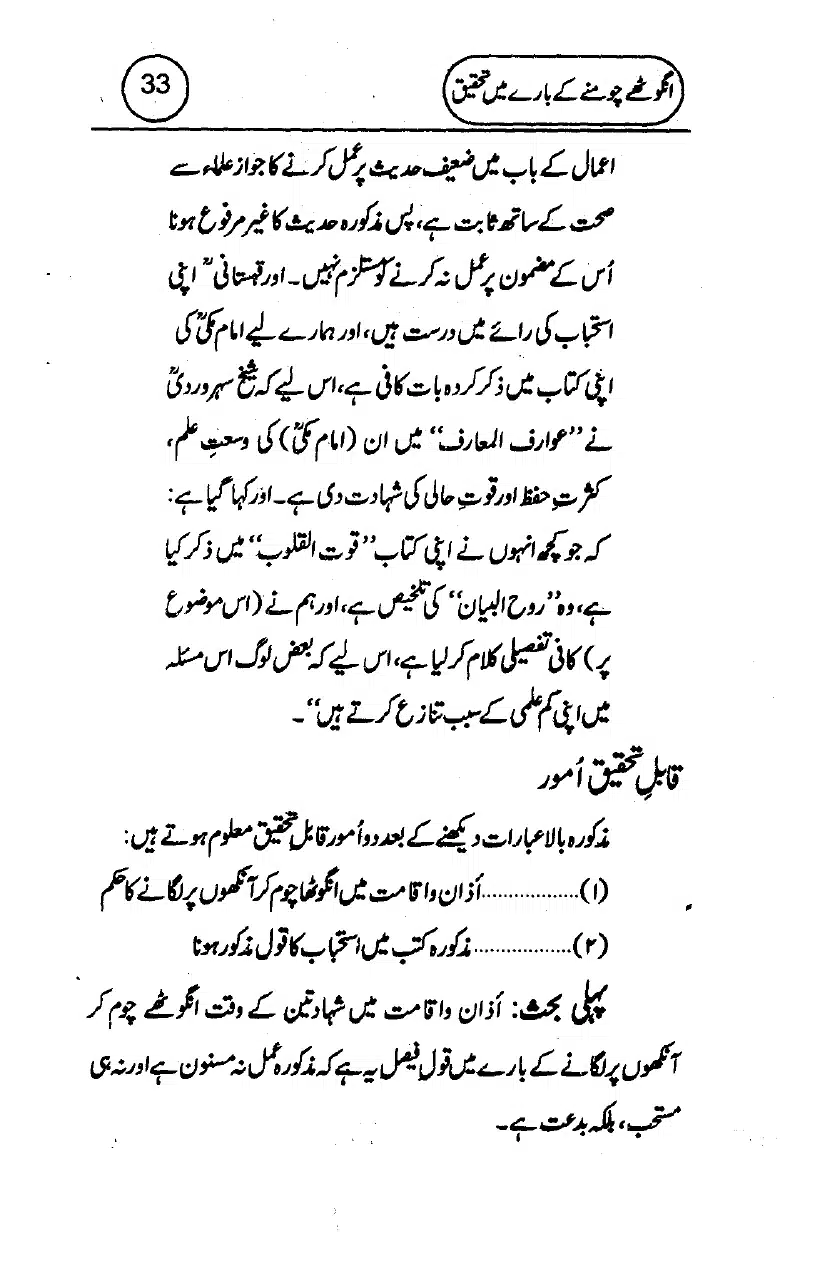 انگوٹھے چومنے کے بارے میں تحقیق
33
اعمال کے باب میں ضعیف حدیث پر عمل کرنے کا جواز علماء سے
صحت کے ساتھ ثابت ہے، پس مذکورہ حدیث کا غیر مرفوع ہونا
اُس کے مضمون پر عمل نہ کرنے کو مستلزم نہیں۔ اور قہستانیؒ اپنی
استحباب کی رائے میں درست ہیں، اور ہمارے لیے امام مکیؒ کی
اپنی کتاب میں ذکر کردہ بات کافی ہے، اس لیے کہ شیخ سہروردیؒ
نے ”عوارف المعارف“ میں ان (امام مکیؒ) کی وسعتِ علم،
کثرتِ حفظ اور قوتِ حالی کی شہادت دی ہے۔ اور کہا گیا ہے:
کہ جو کچھ انہوں نے اپنی کتاب ”قوت القلوب“ میں ذکر کیا
ہے، وہ ”روح البیان“ کی تلخیص ہے، اور ہم نے (اس موضوع
پر) کافی تفصیلی کلام کر لیا ہے، اس لیے کہ بعض لوگ اس مسئلہ
میں اپنی کم علمی کے سبب تنازع کرتے ہیں“۔
قابلِ تحقیق اُمور
مذکورہ بالا عبارات دیکھنے کے بعد دو اُمور قابل تحقیق معلوم ہوتے ہیں:
(۱)..................اَذان و اقامت میں انگوٹھا چوم کر آنکھوں پر لگانے کا حکم
(۲)..................مذکورہ کتب میں استحباب کا قول مذکور ہونا
پہلی بحث: اَذان و اقامت میں شہادتین کے وقت انگوٹھے چوم کر
آنکھوں پر لگانے کے بارے میں قول فیصل یہ ہے کہ مذکورہ عمل نہ مسنون ہے اور نہ ہی
مستحب، بلکہ بدعت ہے۔